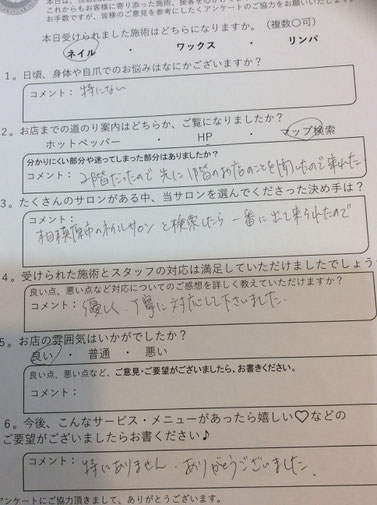 これからもお客様に寄り添った施術、接客を
お手数ですが、皆様のご意見を参考にしたくアンケートのご協力をお願いいたします。
本日受けられました施術はどちらになりますか。（複数○可）
ネイル ・ ワックス ・ リンパ
1。日頃、身体や自爪でのお悩みはなにかございますか？
コメント：特にない
2。お店までの道のり案内はどちらか、ご覧になりましたか？
ホットペッパー ・ HP ・ マップ検索
分かりにくい部分や迷ってしまった部分はありましたか？
コメント：2階だったので先に1階のお店のことを聞いたので来れた！
3。たくさんのサロンがある中、当サロンを選んでくださった決め手は？
コメント：
相模原市のネイルサロンと検索したら一番に出て来られたので
4。受けられた施術とスタッフの対応は満足していただけましたでしょう
良い点、悪い点など対応についてのご感想を詳しく教えていただけますか？
コメント：優しく、丁寧に対応して下さいました。
5。お店の雰囲気はいかがでしたか？
良い ・ 普通 ・ 悪い
良い点、悪い点など、ご意見・ご要望がございましたら、お書きください。
コメント：
6。今後、こんなサービス・メニューがあったら嬉しい♡などの
ご要望がございましたらお書ください♪
コメント：特にありません。ありがとうございました。
アンケートにご協力頂きまして、ありがとうございます。